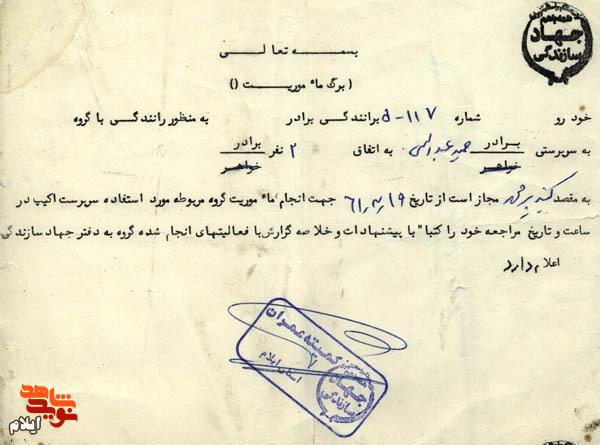 همه با هم
جهاد
سازندگی
بسمه تعالی
( برگ مأموریت ( )
خود رو شماره ۱۱۷-d برانندگی برادر به منظور رانندگی با گروه
به سرپرستی برادر حمید به اتفاق ۲ نفر برادر
خواهر خواهر
به مقصد مجاز است از تاریخ ۶۱٫۴٫۱۹ جهت انجام مأموریت گروه مربوطه مورد استفاده سرپرست اکیپ در
ساعت و تاریخ مراجعه خود را کتبا" با پیشنهادات و خلاصه گزارش با فعالیتهای انجام شده گروه به دفتر جهاد سازندگی
اعلام دارد
کمیته عمران
جهاد
سازندگی
استان ایلام
نوید شاهد
ایلام